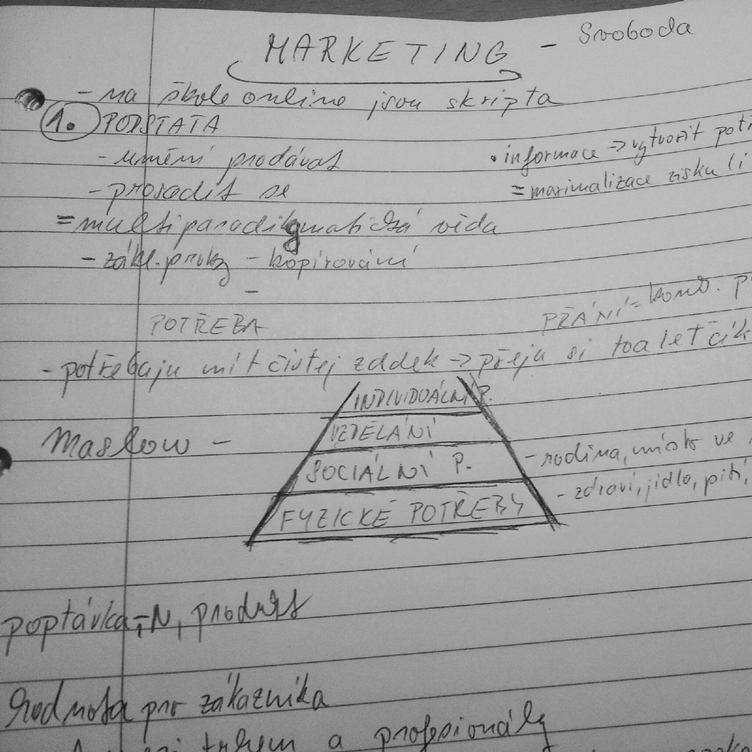 MARKETING - Svoboda
- na škole online jsou skripta
1. PODSTATA
- umění prodávat
• informace → vytvořit potř
- prosadit se
= maximalizace zisku (i
= multiparadigmatická věda
- zákl. prvky - kopírování
-
POTŘEBA
PŘÁNÍ = konk. p
- potřebuju mít čistej zadek → přeju si toaleťčik
Maslow -
INDIVIDUÁLNÍ P.
VZDĚLÁNÍ
SOCIÁLNÍ P.
- rodina, místo ve
FYZICKÉ POTŘEBY
- zdraví, jídlo, pití,
poptávka, N, produkt
Hodnota pro zákazníka
trhem a profesionály